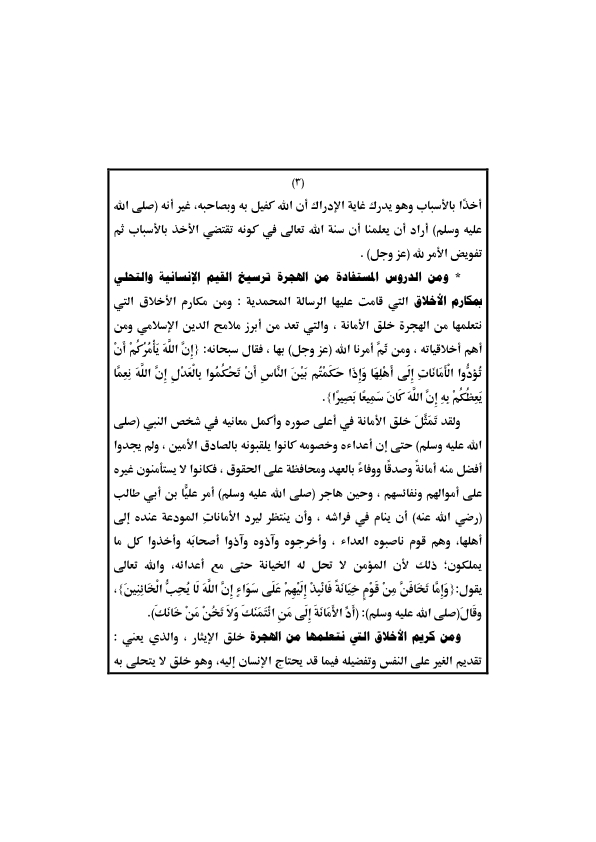 (٣)
أخذًا بالأسباب وهو يدرك غاية الإدراك أن الله كفيل به وبصاحبه، غير أنه (صلى الله
عليه وسلم) أراد أن يعلمنا أن سنة الله تعالى في كونه تقتضي الأخذ بالأسباب ثم
تفويض الأمر لله (عز وجل) .
* ومن الدروس المستفادة من الهجرة ترسيخ القيم الإنسانية والتحلي
بمكارم الأخلاق التي قامت عليها الرسالة المحمدية : ومن مكارم الأخلاق التي
نتعلمها من الهجرة خلق الأمانة ، والتي تعد من أبرز ملامح الدين الإسلامي ومن
أهم أخلاقياته ، ومن ثَمَّ أمرنا الله (عز وجل) بها ، فقال سبحانه: {إِنَّ اللَّهَ يَأْمُرُكُمْ أَنْ
تُؤَدُّوا الْأَمَانَاتِ إِلَى أَهْلِهَا وَإِذَا حَكَمْتُم بَيْنَ النَّاسِ أَنْ تَحْكُمُوا بِالْعَدْلِ إِنَّ اللَّهَ نِعِمَّا
يَعِظُكُمْ بِهِ إِنَّ اللَّهَ كَانَ سَمِيعًا بَصِيرًا}.
ولقد تَمَثَّلَ خلق الأمانة في أعلى صوره وأكمل معانيه في شخص النبي (صلى
الله عليه وسلم) حتى إن أعداءه وخصومه كانوا يلقبونه بالصادق الأمين ، ولم يجدوا
أفضل منه أمانةً وصدقًا ووفاءً بالعهد ومحافظة على الحقوق ، فكانوا لا يستأمنون غيره
على أموالهم ونفائسهم ، وحين هاجر (صلى الله عليه وسلم) أمر عليًّا بن أبي طالب
(رضي الله عنه) أن ينام في فراشه ، وأن ينتظر ليرد الأماناتِ المودعة عنده إلى
أهلها، وهم قوم ناصبوه العداء ، وأخرجوه وآذوه وآذوا أصحابَه وأخذوا كل ما
يملكون؛ ذلك لأن المؤمن لا تحل له الخيانة حتى مع أعدائه، والله تعالى
يقول:{وَإِمَّا تَخَافَنَّ مِنْ قَوْمٍ خِيَانَةً فَانْبِذْ إِلَيْهِمْ عَلَى سَوَاءٍ إِنَّ اللَّهَ لَا يُحِبُّ الْخَائِنِينَ}،
وقالَ(صلى الله عليه وسلم): (أَدِّ الأَمَانَةَ إِلَى مَنِ ائْتَمَنَكَ وَلاَ تَخُنْ مَنْ خَانَكَ).
ومن كريم الأخلاق التي نتعلمها من الهجرة خلق الإيثار ، والذي يعني :
تقديم الغير على النفس وتفضيله فيما قد يحتاج الإنسان إليه، وهو خلق لا يتحلى به